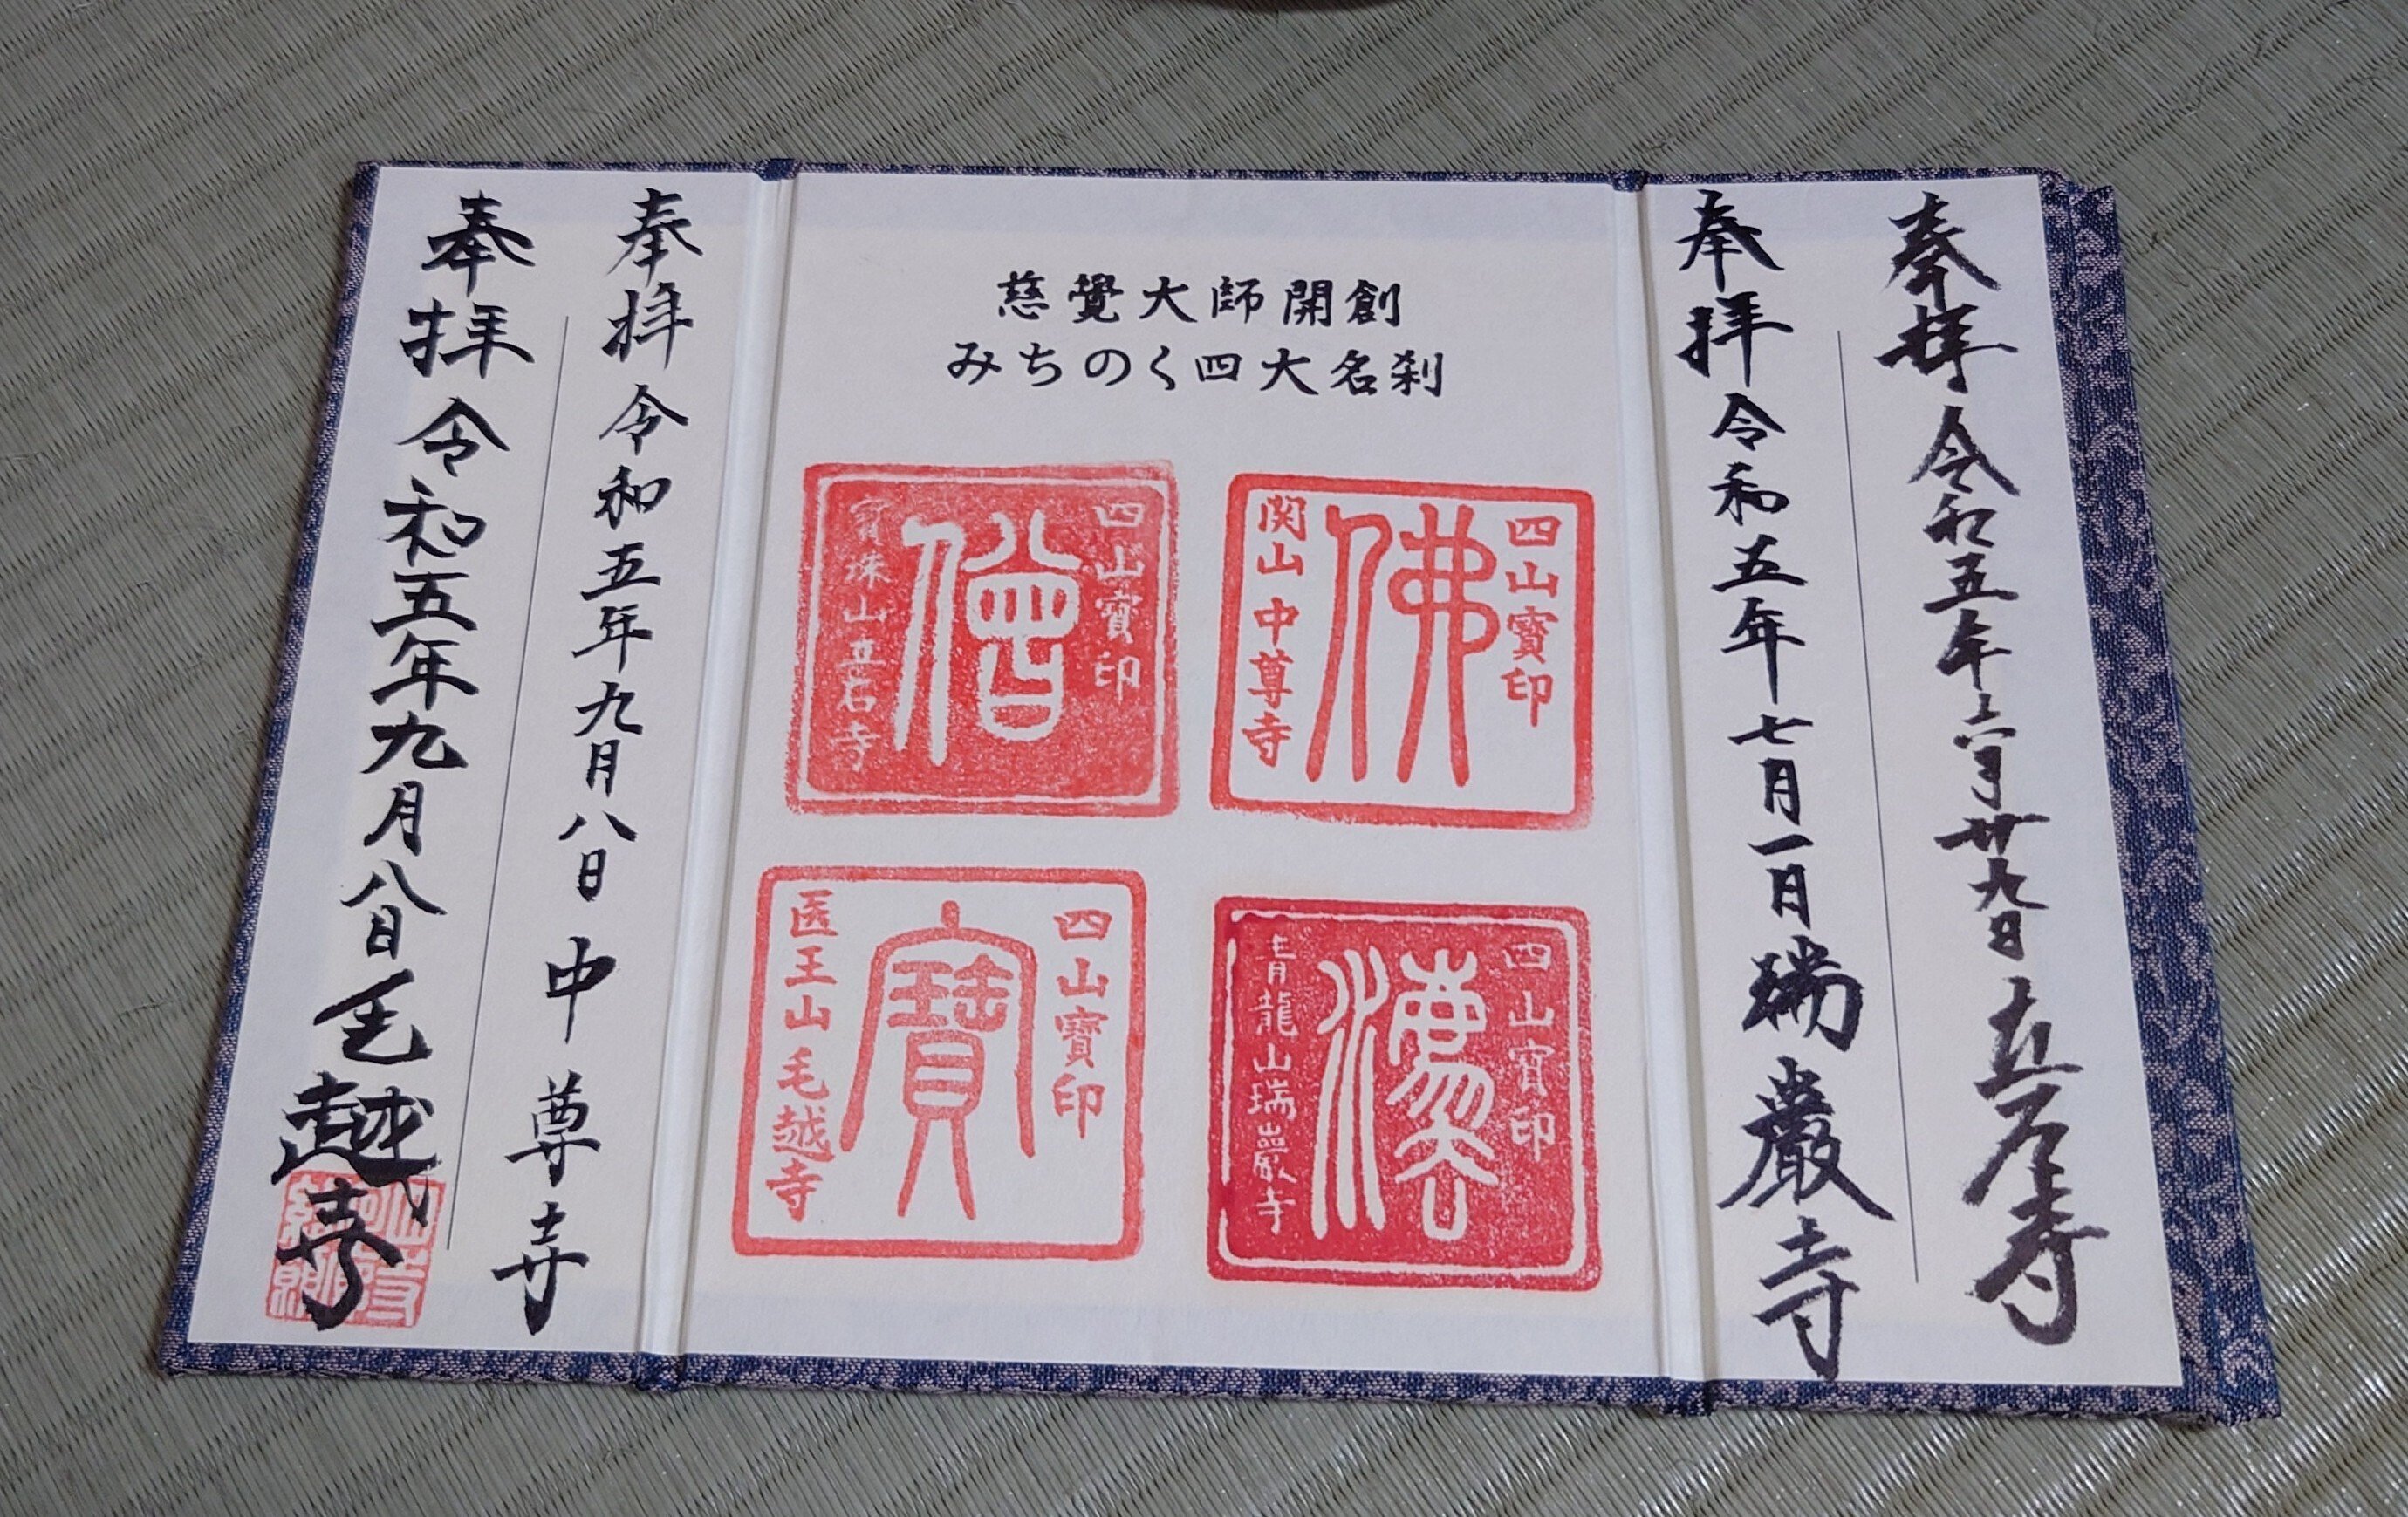 奉拝 令和五年六月廿九日 立石寺
奉拝 令和五年七月一日 瑞巌寺
慈覺大師開創
みちのく四大名刹
四山寳印
佛
関山 中尊寺
四山寳印
僧
寳珠山立石寺
四山寳印
法
青龍山瑞巖寺
四山寳印
寳
医王山 毛越寺
奉拝 令和五年九月八日 中尊寺
奉拝 令和五年九月八日 毛越寺